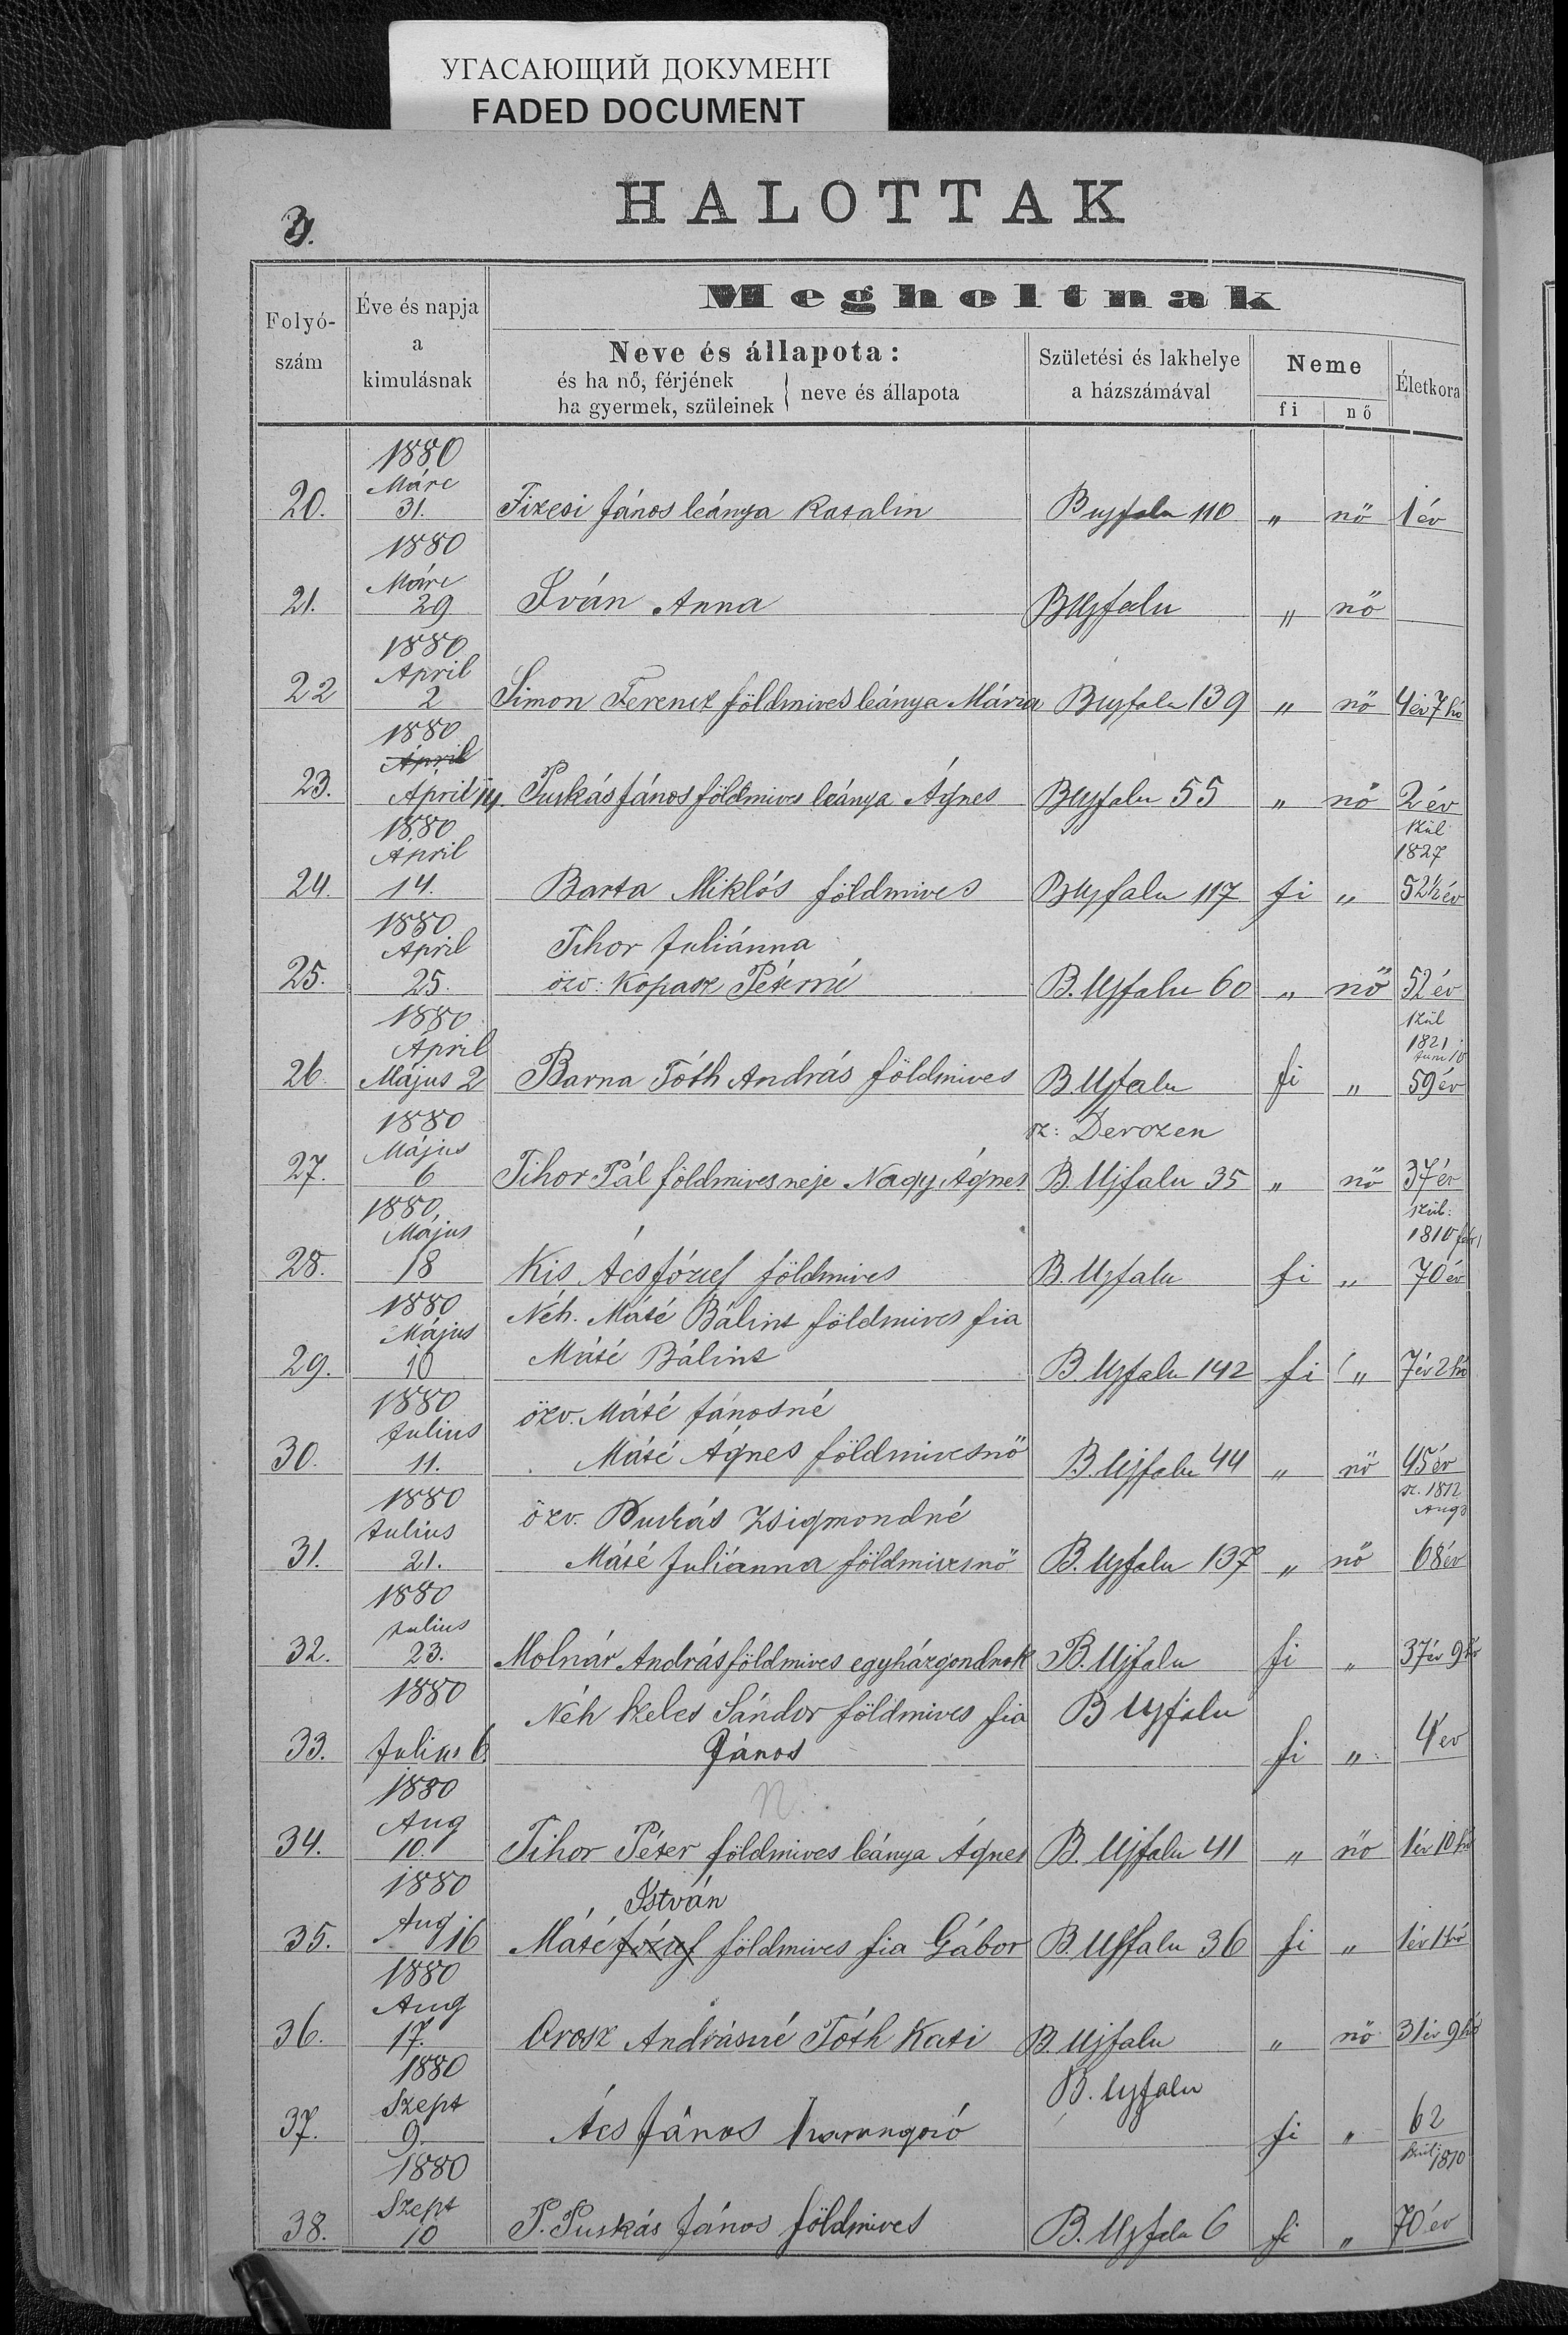 УГАСАЮЩИЙ ДОКУМЕНТ
FADED DOCUMENT
HALOTTAK
Folyó-szám
Éve és napja a kimulásnak
Megholtnak
Neve és állapota:
és ha nő, férjének
ha gyermek, szüleinek
neve és állapota
Születési és lakhelye a házszámával
Neme
fi nő
Életkora
1880
Márc
20. 31. Fizesi János leánya Katalin B ujfalu 110 „ nő 1 év
1880
Márc
21. 29 Iván Anna BUjfalu „ nő
1880
April
22 2 Simon Ferencz földmives leánya Mária Bujfalu 139 „ nő 4 év 7 hó
1880
April
23. April 14. Puskás János földmives leánya Ágnes BUjfalu 55 „ nő 2 év
1880 szül
April 1827
24. 14. Barta Miklós földmives BUjfalu 117 fi „ 52½ év
1880
April Tihor Juliánna
25. 25. özv: Kopasz Péterné B. Ujfalu 60 „ nő 52 év
1880 szül
April 1821 Jun 10
26. Május 2 Barna Tóth András földmives B. Ujfalu fi „ 59 év
1880 sz: Derczen
Május
27. 6 Tihor Pál földmives neje Nagy Ágnes B. Ujfalu 35 „ nő 37 év
1880, szül:
Május 1810 febr
28. 18 Kis Ács József földmives B. Ujfalu fi „ 70 év
1880 Néh. Máté Bálint földmives fia
Május
29. 10 Máté Bálint B. Ujfalu 142 fi „ 7 év 2 hó
1880 özv. Máté Jánosné
Julius
30. 11. Máté Ágnes földmivesnő B. Ujfalu 44 „ nő 45 év
1880 özv. Puskás Zsigmondné sz. 1812
Julius Aug
31. 21. Máté Juliánna földmivesnő B. Ujfalu 137 „ nő 68 év
1880
Julius
32. 23. Molnár András földmives egyházgondnok B. Ujfalu fi „ 37 év 9 hó
1880 Néh Szeles Sándor földmives fia B Ujfalu
33. Julius 6. János fi „ 4 év
1880
N.
Aug
34. 10. Tihor Péter földmives leánya Ágnes B. Ujfalu 41 „ nő 1 év 10 hó
1880 István
Aug
35. 16 Máté József földmives fia Gábor B. Ujfalu 36 fi „ 1 év 1 hó
1880
Aug
36. 17. Orosz Andrásné Tóth Kati B. Ujfalu „ nő 31 év 9 hó
1880 B. Ujfalu
Szept
37. 9. Ács János harangozó fi „ 62
1880 szül: 1810
Szept
38. 10 P. Puskás János földmives B. Ujfalu 6 fi „ 70 év